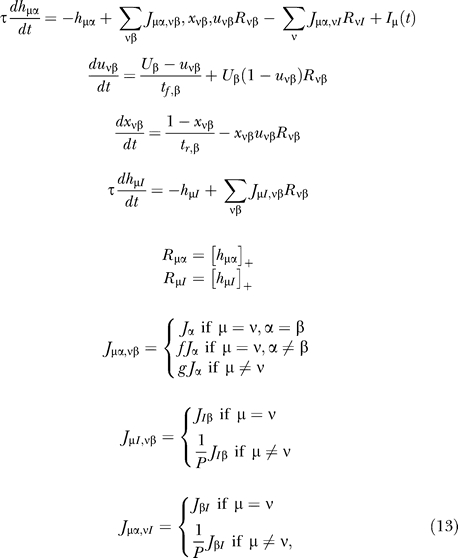 τ dh_μα/dt = −h_μα + ∑_νβ J_μα,νβ, x_νβ, u_νβ R_νβ − ∑_ν J_μα,νI R_νI + I_μ(t)
du_νβ/dt = (U_β − u_νβ)/t_f,β + U_β(1 − u_νβ)R_νβ
dx_νβ/dt = (1 − x_νβ)/t_r,β − x_νβ u_νβ R_νβ
τ dh_μI/dt = −h_μI + ∑_νβ J_μI,νβ R_νβ
R_μα = [h_μα]_+
R_μI = [h_μI]_+
J_μα,νβ = { J_α if μ = ν, α = β
fJ_α if μ = ν, α ≠ β
gJ_α if μ ≠ ν
J_μI,νβ = { J_Iβ if μ = ν
1/P J_Iβ if μ ≠ ν
J_μα,νI = { J_βI if μ = ν
1/P J_βI if μ ≠ ν, (13)